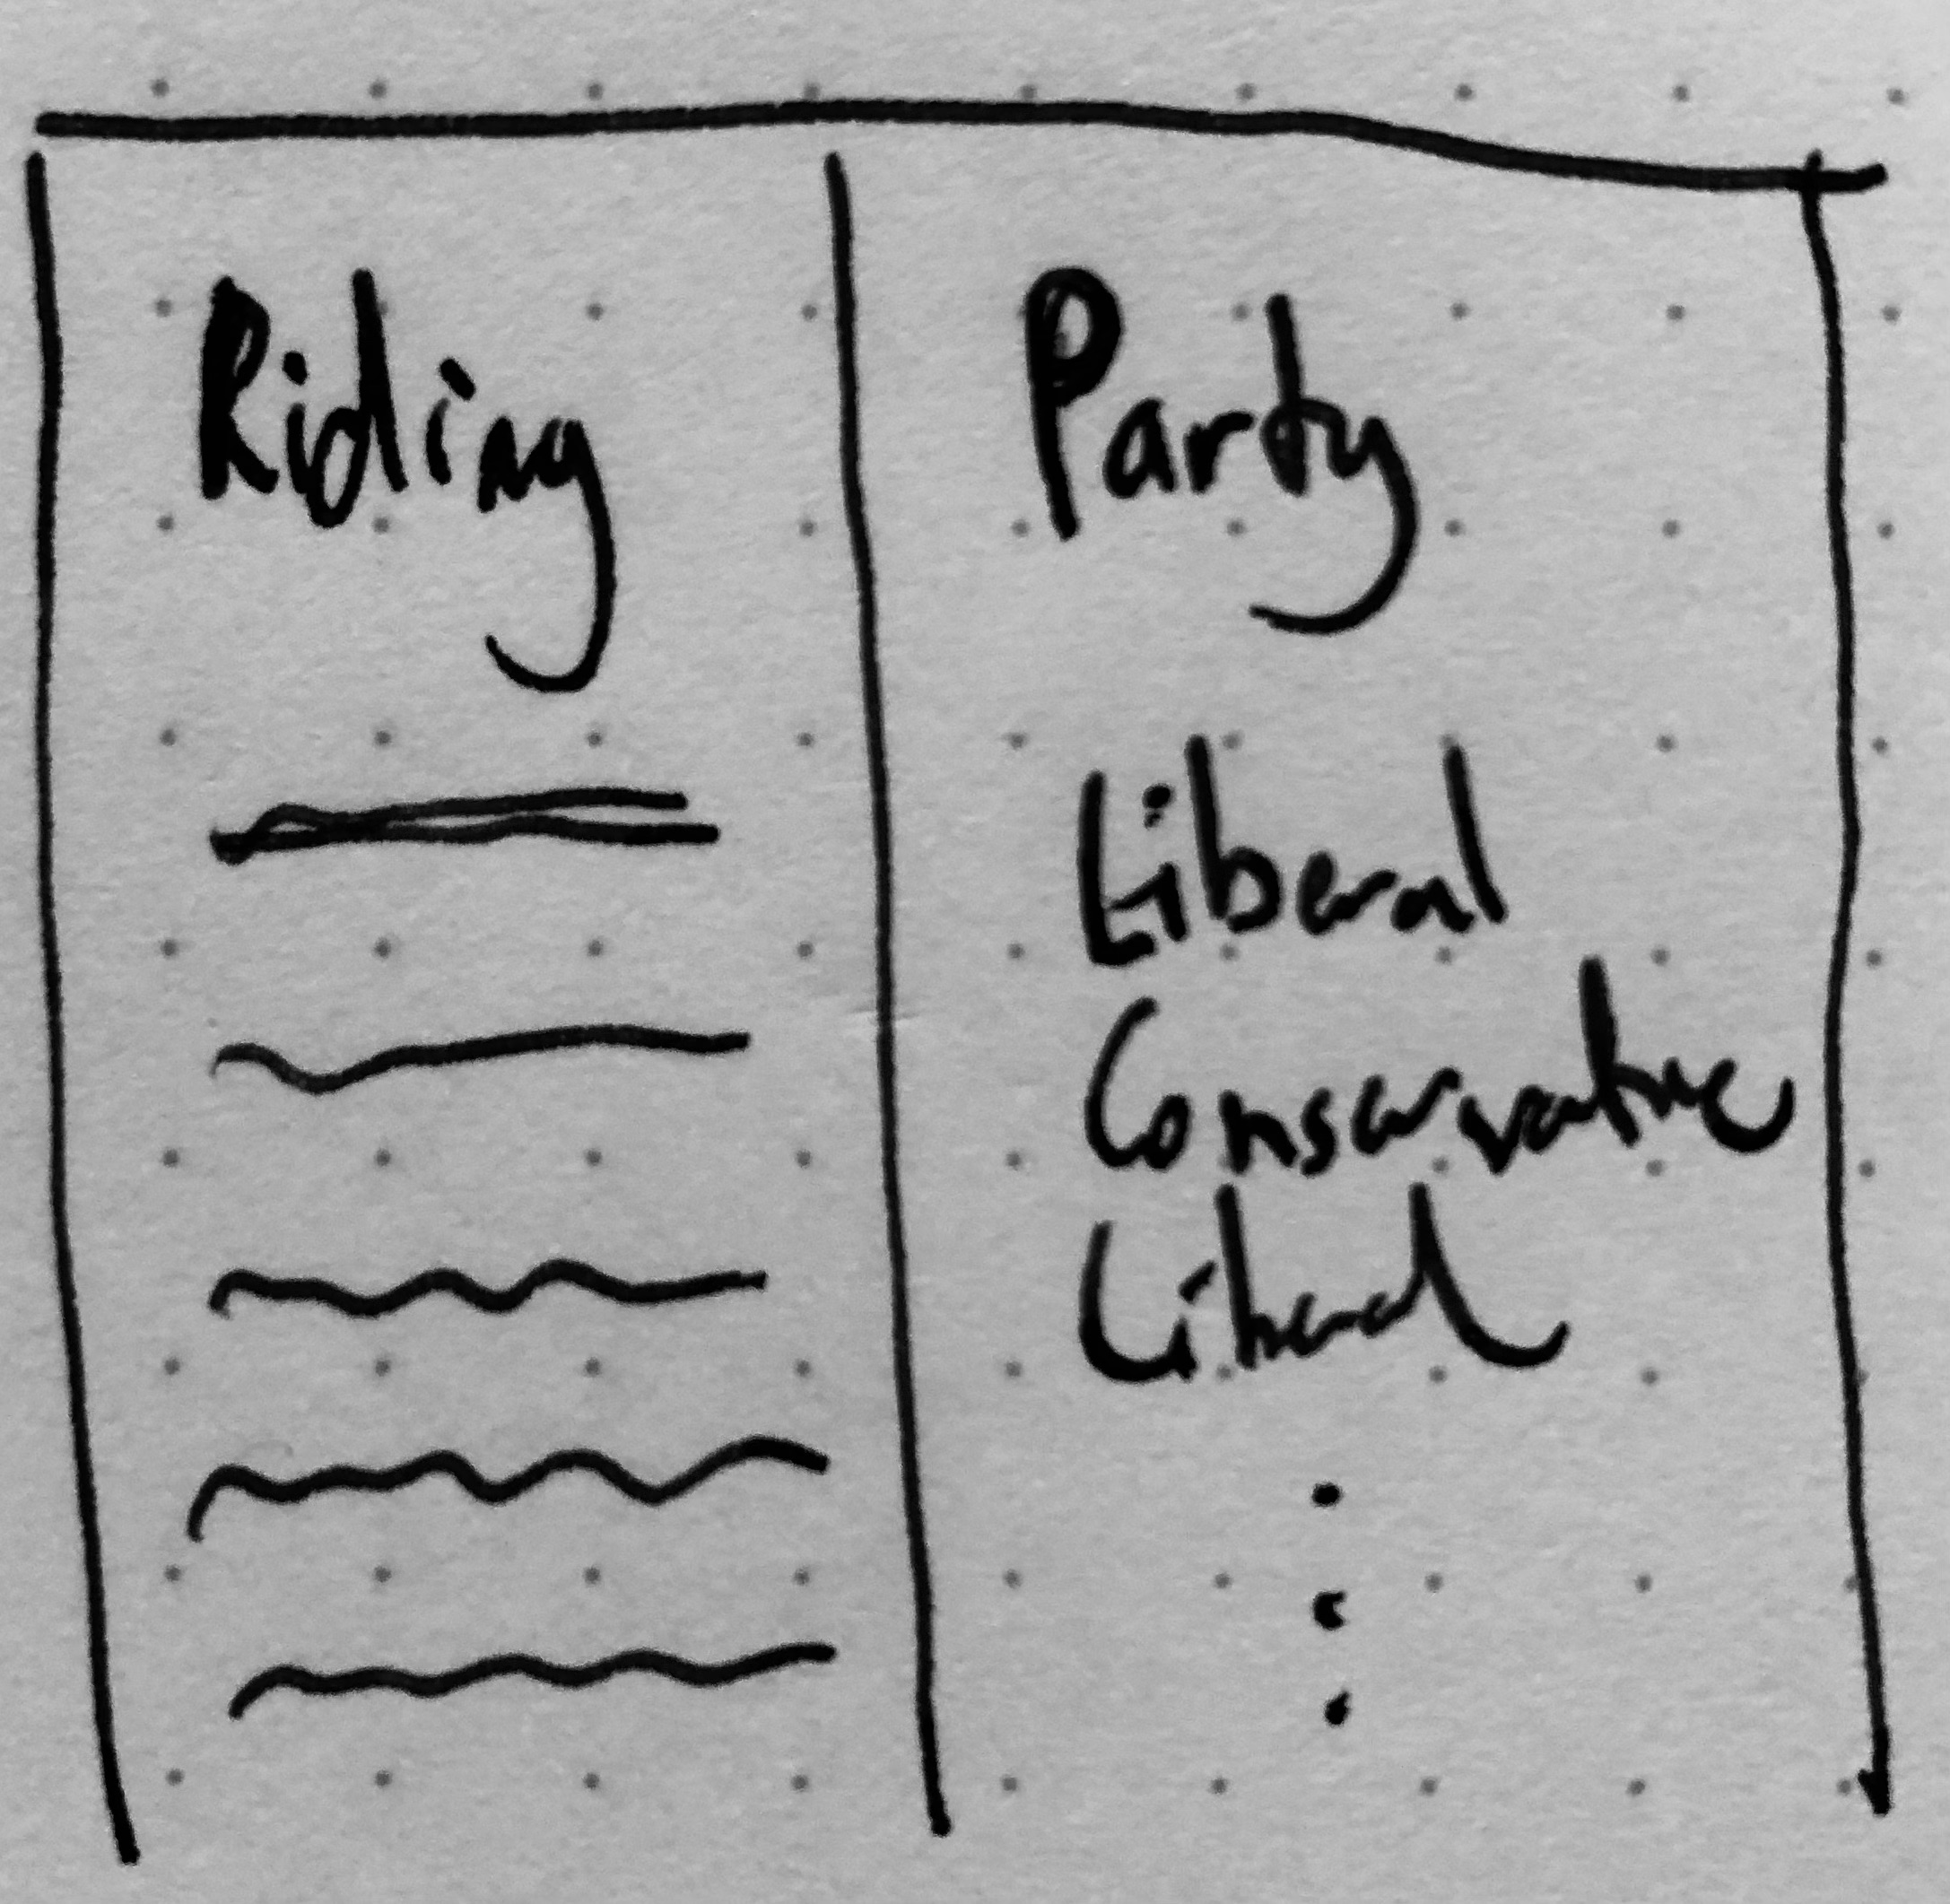 Riding Party
Liberal
Conservative
Liberal